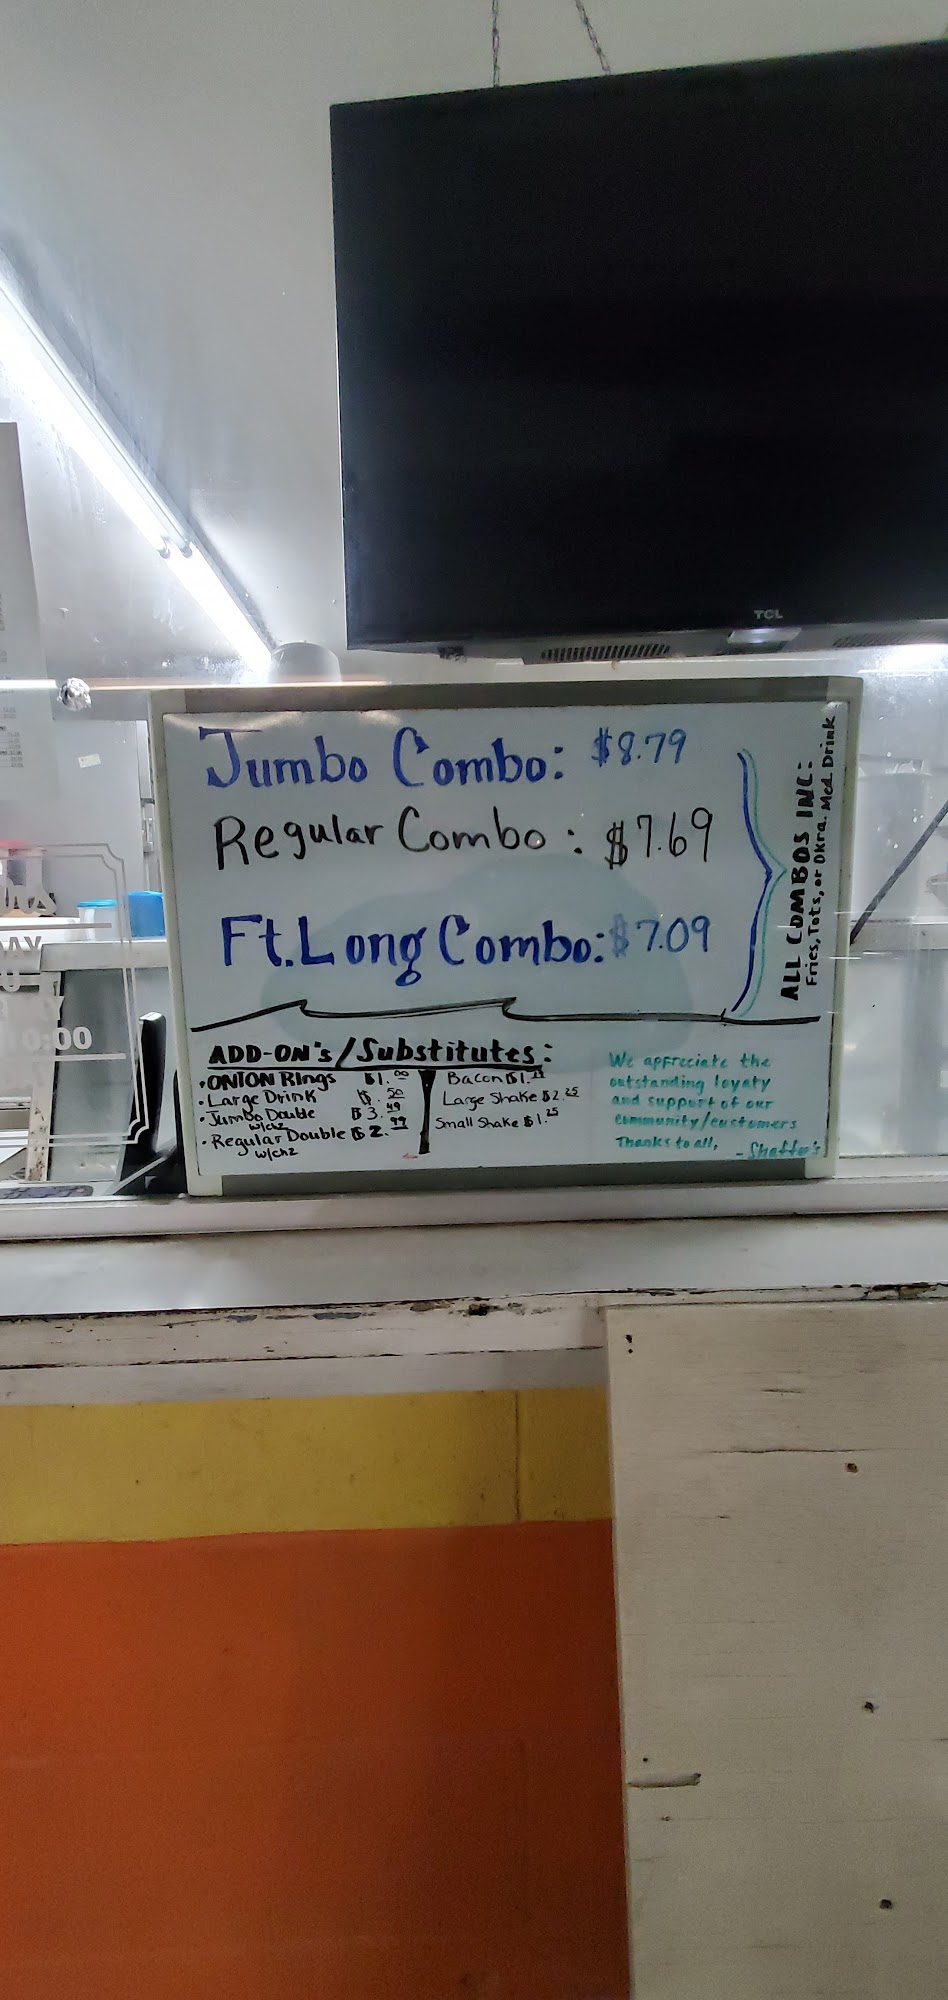 TCL
Jumbo Combo: $8.79
Regular Combo: $7.69
Ft. Long Combo: $7.09
ALL COMBOS INC:
Fries, Tots, or Okra. Med. Drink
ADD-ON's/Substitutes:
•ONION Rings $1.00
•Large Drink $.50
•Jumbo Double $3.49
w/chz
•Regular Double $2.99
w/chz
Bacon $1.
Large Shake $2.25
Small Shake $1.25
We appreciate the
outstanding loyaty
and support of our
community/customers
Thanks to all,
-Shaffer's
0:00